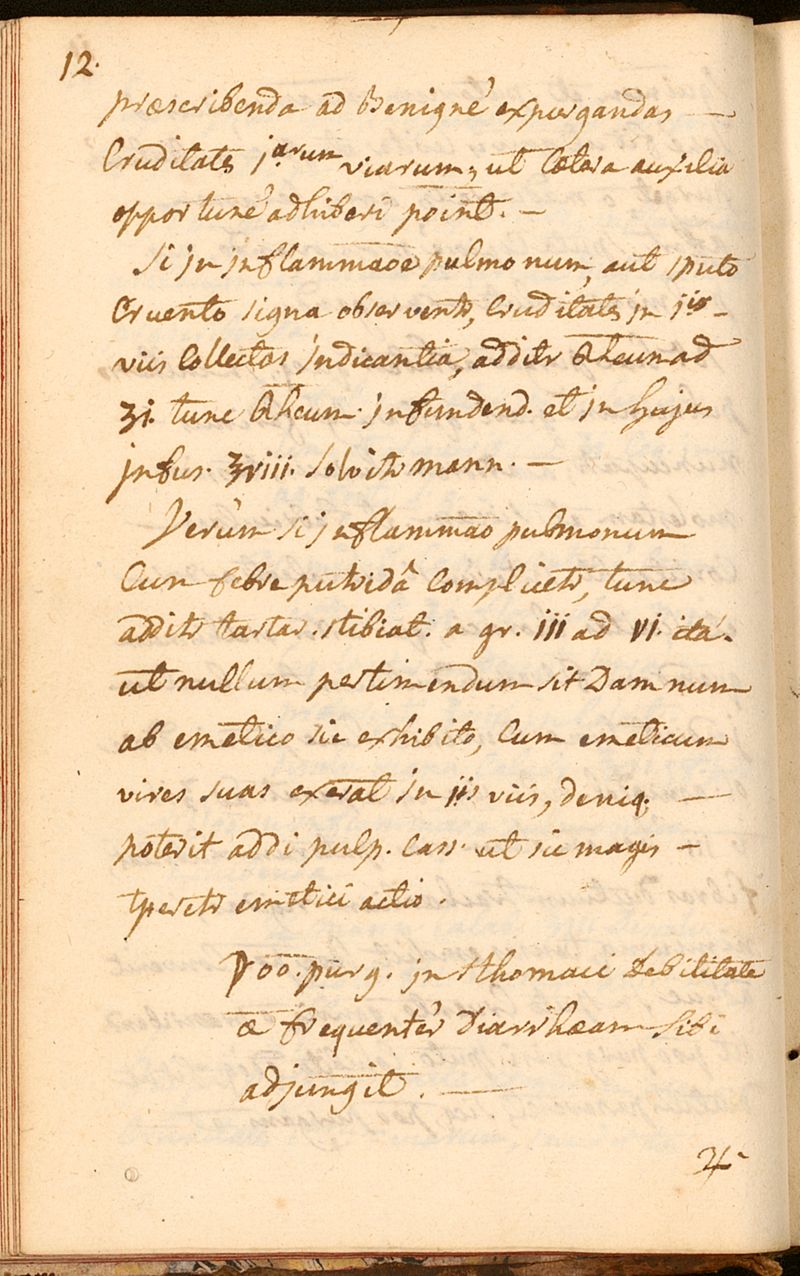 12.
præscribenda ad Benigné expurgandas —
Cruditates jarum viarum, ut Cætera auxilia
opportuné adhiberi point. —
Si jn jnflammaoe pulmonum, aut sputo
Cruento signa observentr, Cruditates jn jis -
viis Collectas jndicantia, additr Rheum ad
ʒi. tunc Rheum jnfundend. et jn hujus
jnfus. ʒviii. Solvitr mann. —
Verùm si jnflammao pulmonum
Cum febre putridâ Complicetr, tunc
additr tartar. stibiat. a gr. iii ad vi. itá.
ut nullum pertimendum sit Damnum
ab emetico sic exhibito, Cum emeticum
vires suas exerat jn jis viis, deniq. —
poterit addi pulp. Cass. ut sic magis -
tperetr emetici actio.
poo. purg. jn sthomaci debilitate
æ frequentér Diarrhæam sibi
adjungit. —